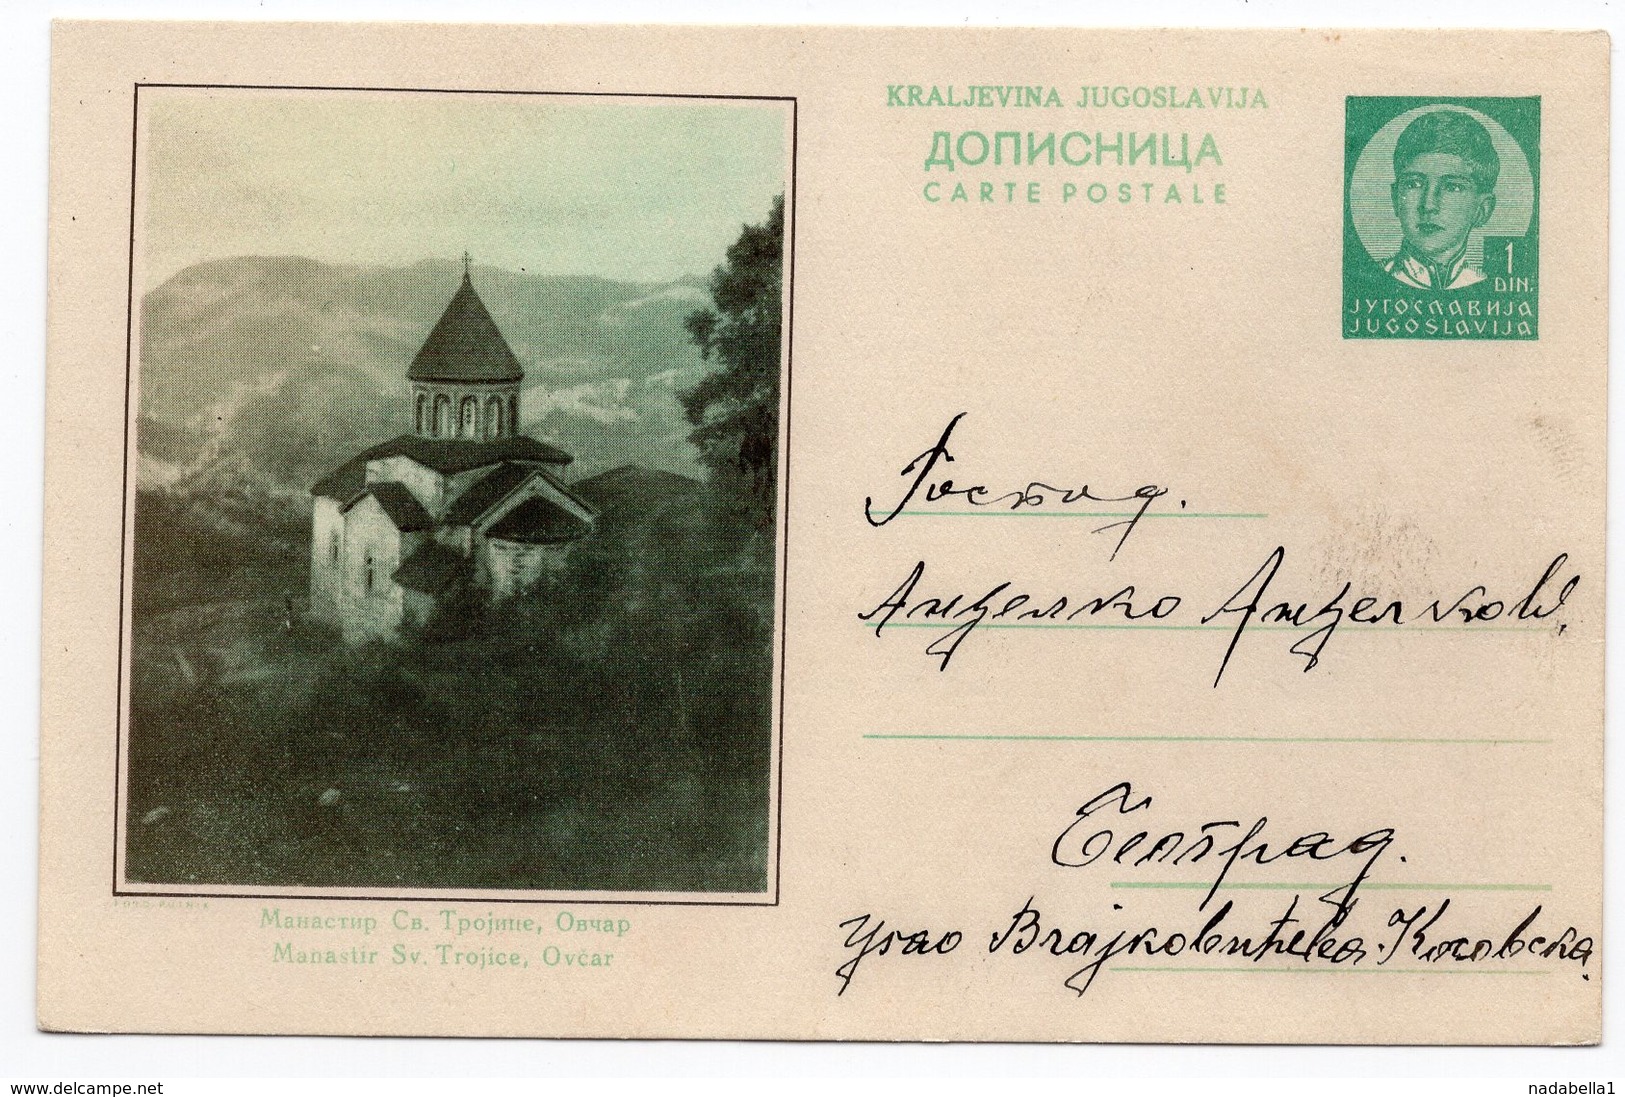 KRALJEVINA JUGOSLAVIJA
ДОПИСНИЦА
CARTE POSTALE
1
DIN.
ЈУГОСЛАВИЈА
JUGOSLAVIJA
Господ.
Анђелко Анђелковић
Београд.
Угао Влајковићева-Косовска.
FOTO PUTNIK
Манастир Св. Тројице, Овчар
Manastir Sv. Trojice, Ovčar
www.delcampe.net
nadabella1